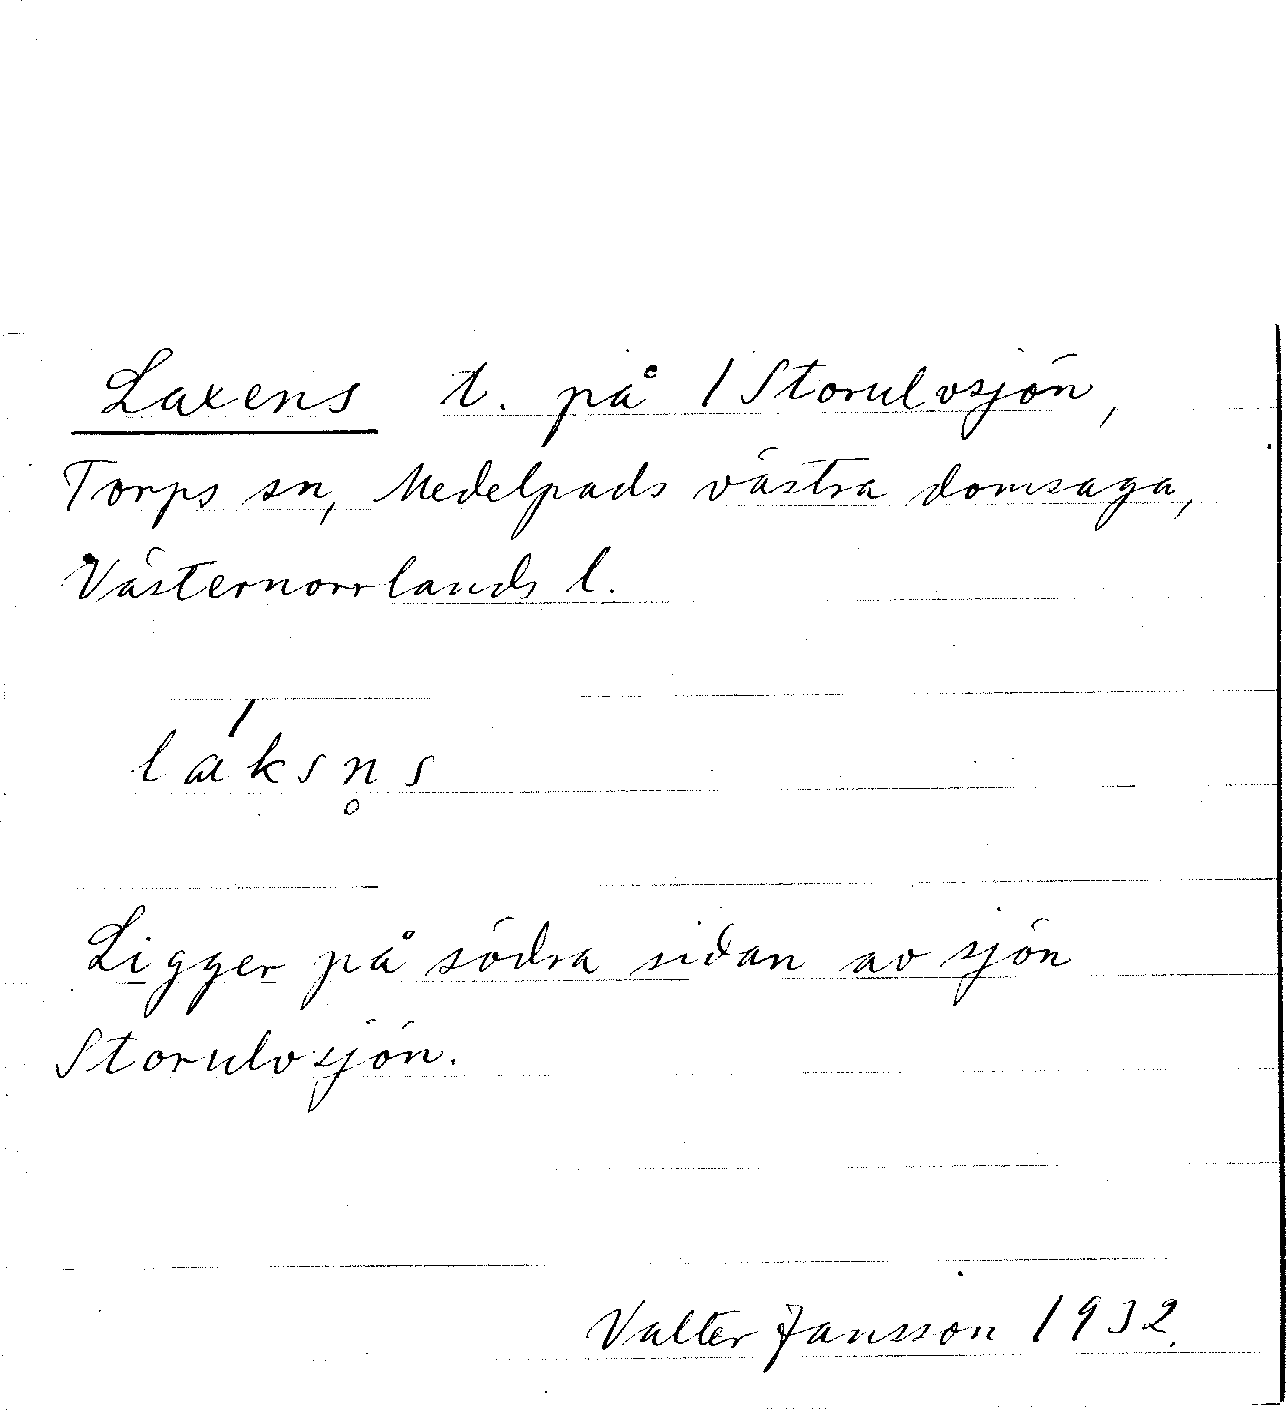 Laxens t. på 1 Storulvsjön,
Torps sn, Medelpads västra domsaga,
Västernorrlands l.
lák̍sn̥s
Ligger på södra sidan av sjön
Storulvsjön.
Valter Jansson 1932.